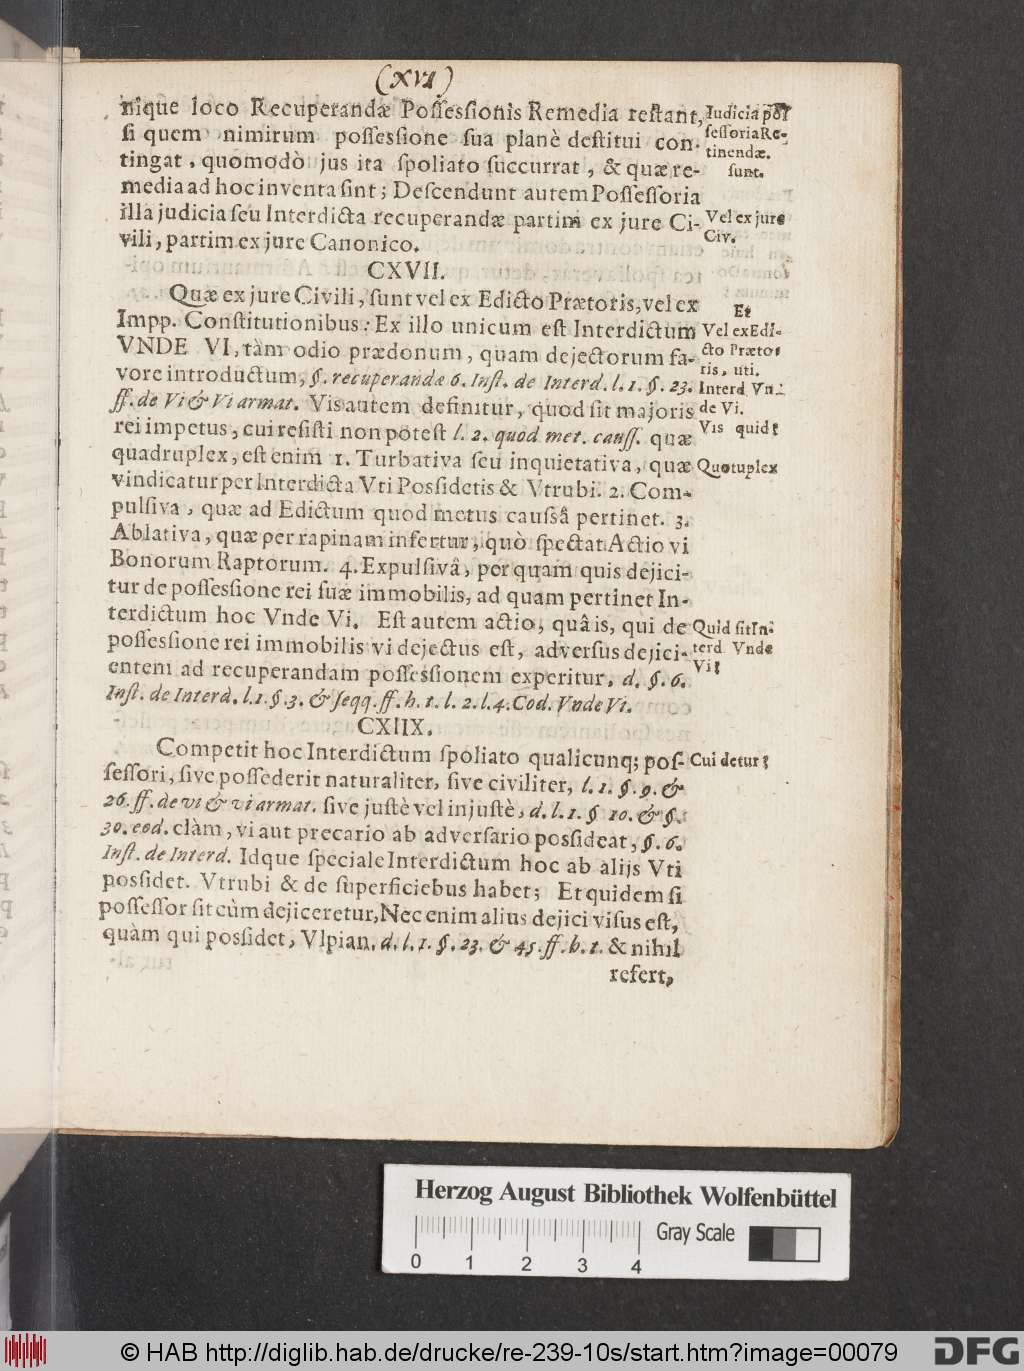 (XVI)
nique loco Recuperandæ Possessionis Remedia restant,
si quem nimirum possessione sua planè destitui con-
tingat, quomodò jus ita spoliato succurrat, & quæ re-
media ad hoc inventa sint; Descendunt autem Possessoria
illa judicia seu Interdicta recuperandæ partim ex jure Ci-
vili, partim ex jure Canonico.
Judicia pos
sessoria Re-
tinendæ.
sunt.
Vel ex jure
Civ.
CXVII.
Quæ ex jure Civili, sunt vel ex Edicto Prætoris, vel ex
Impp. Constitutionibus: Ex illo unicum est Interdictum
VNDE VI, tàm odio prædonum, quam dejectorum fa-
vore introductum, §. recuperandæ 6. Inst. de Interd. l. 1. §. 23.
ff. de Vi & Vi armat. Vis autem definitur, quod sit majoris
rei impetus, cui resisti non potest l. 2. quod met. causs. quæ
quadruplex, est enim 1. Turbativa seu inquietativa, quæ
vindicatur per Interdicta Vti Possidetis & Vtrubi. 2. Com-
pulsiva, quæ ad Edictum quod metus caussâ pertinet. 3.
Ablativa, quæ per rapinam infertur, quò spectat Actio vi
Bonorum Raptorum. 4. Expulsivâ, per quam quis dejici-
tur de possessione rei suæ immobilis, ad quam pertinet In-
terdictum hoc Vnde Vi. Est autem actio, quâ is, qui de
possessione rei immobilis vi dejectus est, adversus dejici-
entem ad recuperandam possessionem experitur, d. §. 6.
Inst. de Interd. l. 1. §. 3. & seqq. ff. h. t. l. 2. l. 4. Cod. Vnde Vi.
Et
Vel ex Edi-
cto Præto-
ris, uti.
Interd Vn-
de Vi.
Vis quid?
Quotuplex
Quid sit In-
terd Vnde
Vi?
CXIIX.
Competit hoc Interdictum spoliato qualicunq; pos-
sessori, sive possederit naturaliter, sive civiliter, l. 1. §. 9. &
26. ff. de vi & vi armat. sive justè vel injustè, d. l. 1. § 10. & §.
30. eod. clàm, vi aut precario ab adversario possideat, §. 6.
Inst. de Interd. Idque speciale Interdictum hoc ab alijs Vti
possidet. Vtrubi & de superficiebus habet; Et quidem si
possessor sit cùm dejiceretur, Nec enim alius dejici visus est,
quàm qui possidet, Vlpian. d. l. 1. §. 23. & 45. ff. h. t. & nihil
refert,
Cui detur?
Herzog August Bibliothek Wolfenbüttel
Gray Scale
0 1 2 3 4
© HAB http://diglib.hab.de/drucke/re-239-10s/start.htm?image=00079
DFG